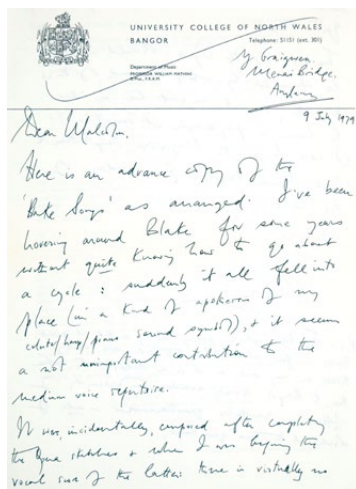 UNIVERSITY COLLEGE OF NORTH WALES
BANGOR
Telephone: 51151 (ext. 301)
Department of Music
PROFESSOR WILLIAM MATHIAS
D.Mus., F.R.A.M.
Y Graigwen,
Menai Bridge,
Anglesey
9 July 1979
Dear Malcolm,
Here is an advance copy of the
'Blake Songs' as arranged. I've been
hovering around Blake for some years
without quite knowing how to go about
a cycle: suddenly it all fell into
place (in a kind of apotheosis of my
celesta/harp/piano sound symbol), & it seems
a not unimportant contribution to the
medium voice repertoire.
It was, incidentally, composed after completing
the sketches & when I was beginning the
vocal score of the latter: there is virtually no